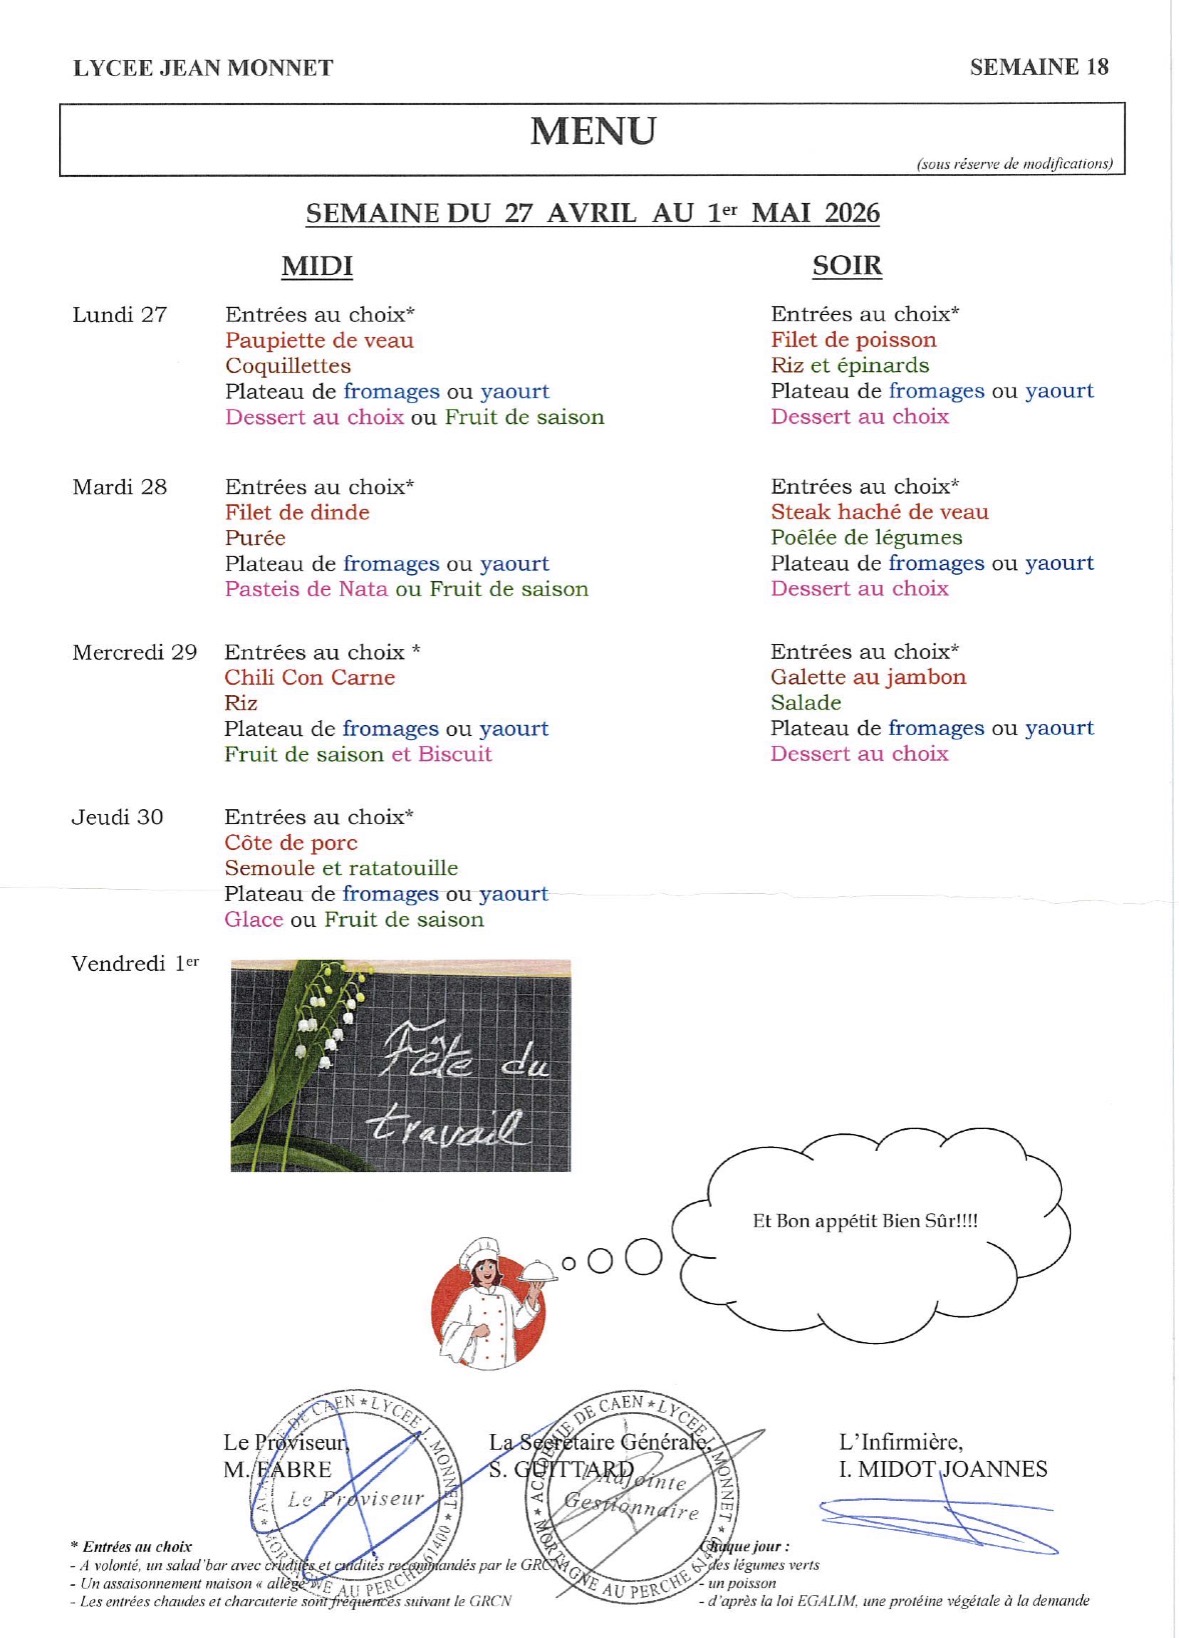 LYCEE JEAN MONNET
SEMAINE 18
MENU
(sous réserve de modifications)
SEMAINE DU 27 AVRIL AU 1er MAI 2026
MIDI
SOIR
Lundi 27
Entrées au choix*
Paupiette de veau
Coquillettes
Plateau de fromages ou yaourt
Dessert au choix ou Fruit de saison
Entrées au choix*
Filet de poisson
Riz et épinards
Plateau de fromages ou yaourt
Dessert au choix
Mardi 28
Entrées au choix*
Filet de dinde
Purée
Plateau de fromages ou yaourt
Pasteis de Nata ou Fruit de saison
Entrées au choix*
Steak haché de veau
Poêlée de légumes
Plateau de fromages ou yaourt
Dessert au choix
Mercredi 29
Entrées au choix *
Chili Con Carne
Riz
Plateau de fromages ou yaourt
Fruit de saison et Biscuit
Entrées au choix*
Galette au jambon
Salade
Plateau de fromages ou yaourt
Dessert au choix
Jeudi 30
Entrées au choix*
Côte de porc
Semoule et ratatouille
Plateau de fromages ou yaourt
Glace ou Fruit de saison
Vendredi 1er
Fête du
travail
Et Bon appétit Bien Sûr!!!!
Le Proviseur,
M. FABRE
La Secrétaire Générale,
S. GUITTARD
L'Infirmière,
I. MIDOT JOANNES
ACADÉMIE DE CAEN * LYCEE J. MONNET * 61400 MORTAGNE AU PERCHE *
Le Proviseur
ACADÉMIE DE CAEN * LYCEE J. MONNET * MORTAGNE AU PERCHE 61400 *
L'Adjointe
Gestionnaire
* Entrées au choix
- A volonté, un salad'bar avec crudités et cuidités recommandés par le GRCN
- Un assaisonnement maison « allégé »
- Les entrées chaudes et charcuterie sont fréquences suivant le GRCN
Chaque jour :
- des légumes verts
- un poisson
- d'après la loi EGALIM, une protéine végétale à la demande